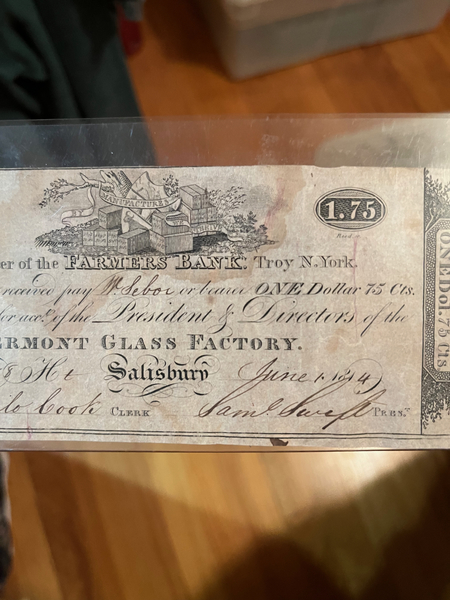 MANUFACTURE
1.75
er of the FARMERS BANK: Troy N. York.
received pay W Sebor or bearer ONE Dollar 75 Cts.
or acc.t of the President & Directors of the
ERMONT GLASS FACTORY.
Salisbury June 1. 1814
lo Cook CLERK Sam.l Swift PRES.T
ONE Dol. 75 Cts